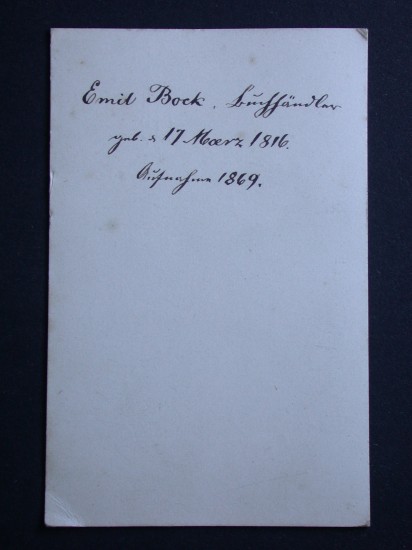 Emil Bock, Buchhändler
geb. d. 17 Maerz 1816.
Aufnahme 1869.